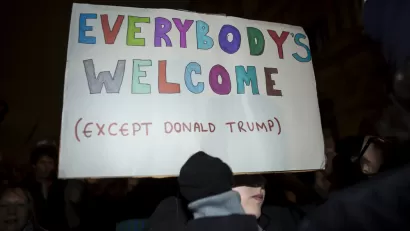 EVERYBODY'S
WELCOME
(EXCEPT DONALD TRUMP)